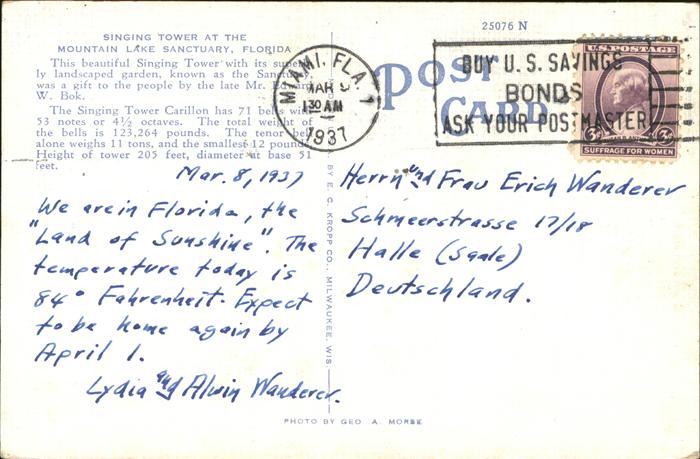 25076 N
SINGING TOWER AT THE
MOUNTAIN LAKE SANCTUARY, FLORIDA
This beautiful Singing Tower with its superb-
ly landscaped garden, known as the Sanctuary,
was a gift to the people by the late Mr. Edward
W. Bok.
The Singing Tower Carillon has 71 bells with
53 notes or 4½ octaves. The total weight of
the bells is 123,264 pounds. The tenor bell
alone weighs 11 tons, and the smallest 12 pounds.
Height of tower 205 feet, diameter at base 51
feet.
POST
CARD
MIAMI, FLA. 1
MAR 9
1 30 AM
1937
BUY U.S. SAVINGS
BONDS
ASK YOUR POSTMASTER
U.S. POSTAGE
3¢ 3¢
SUFFRAGE FOR WOMEN
Mar. 8, 1937
We are in Florida, the
"Land of Sunshine". The
temperature today is
84° Fahrenheit. Expect
to be home again by
April 1.
Lydia and Alwin Wanderer.
BY E. C. KROPP CO., MILWAUKEE, WIS.
Herrn und Frau Erich Wanderer
Schmeerstrasse 17/18
Halle (Saale)
Deutschland.
PHOTO BY GEO. A. MORSE